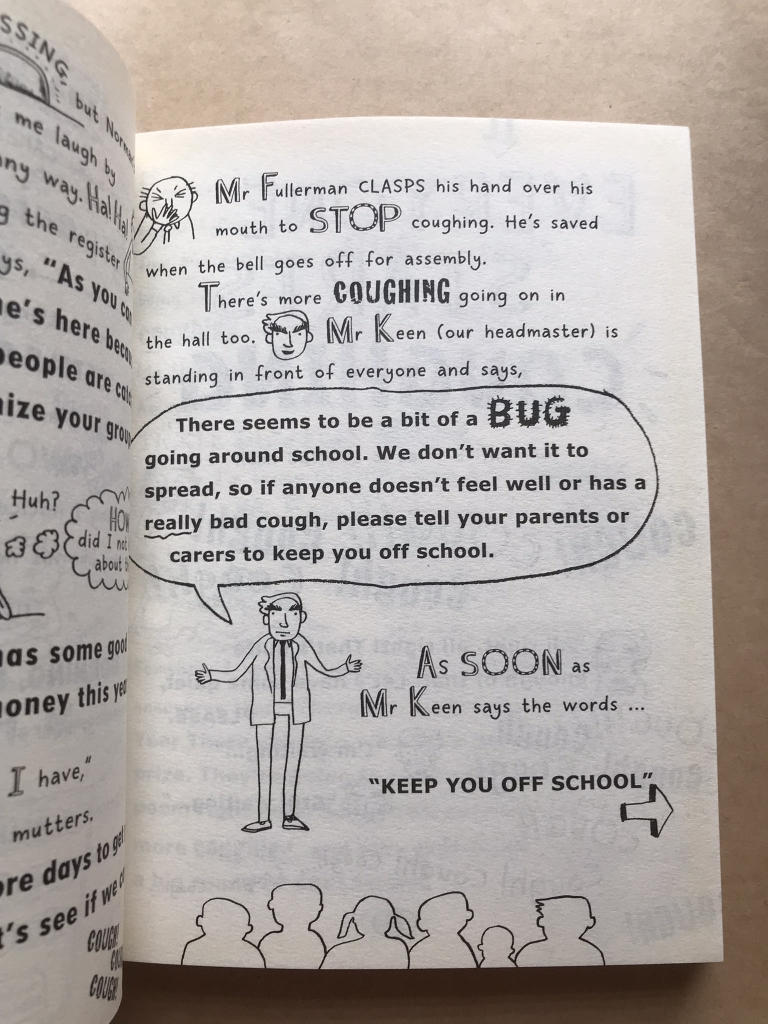 SSING,
but
me laugh by
ny way. Ha! Ha!
g the register
ys, "As you
he's here
people are
ize your
Huh?
HOW
did I not
about
has some good
money this
I have,"
mutters.
ore days to
t's see if we
COUGH!
COUGH!
Mr Fullerman CLASPS his hand over his
mouth to STOP coughing. He's saved
when the bell goes off for assembly.
There's more COUGHING going on in
the hall too. Mr Keen (our headmaster) is
standing in front of everyone and says,
There seems to be a bit of a BUG
going around school. We don't want it to
spread, so if anyone doesn't feel well or has a
really bad cough, please tell your parents or
carers to keep you off school.
As SOON as
Mr Keen says the words ...
"KEEP YOU OFF SCHOOL"